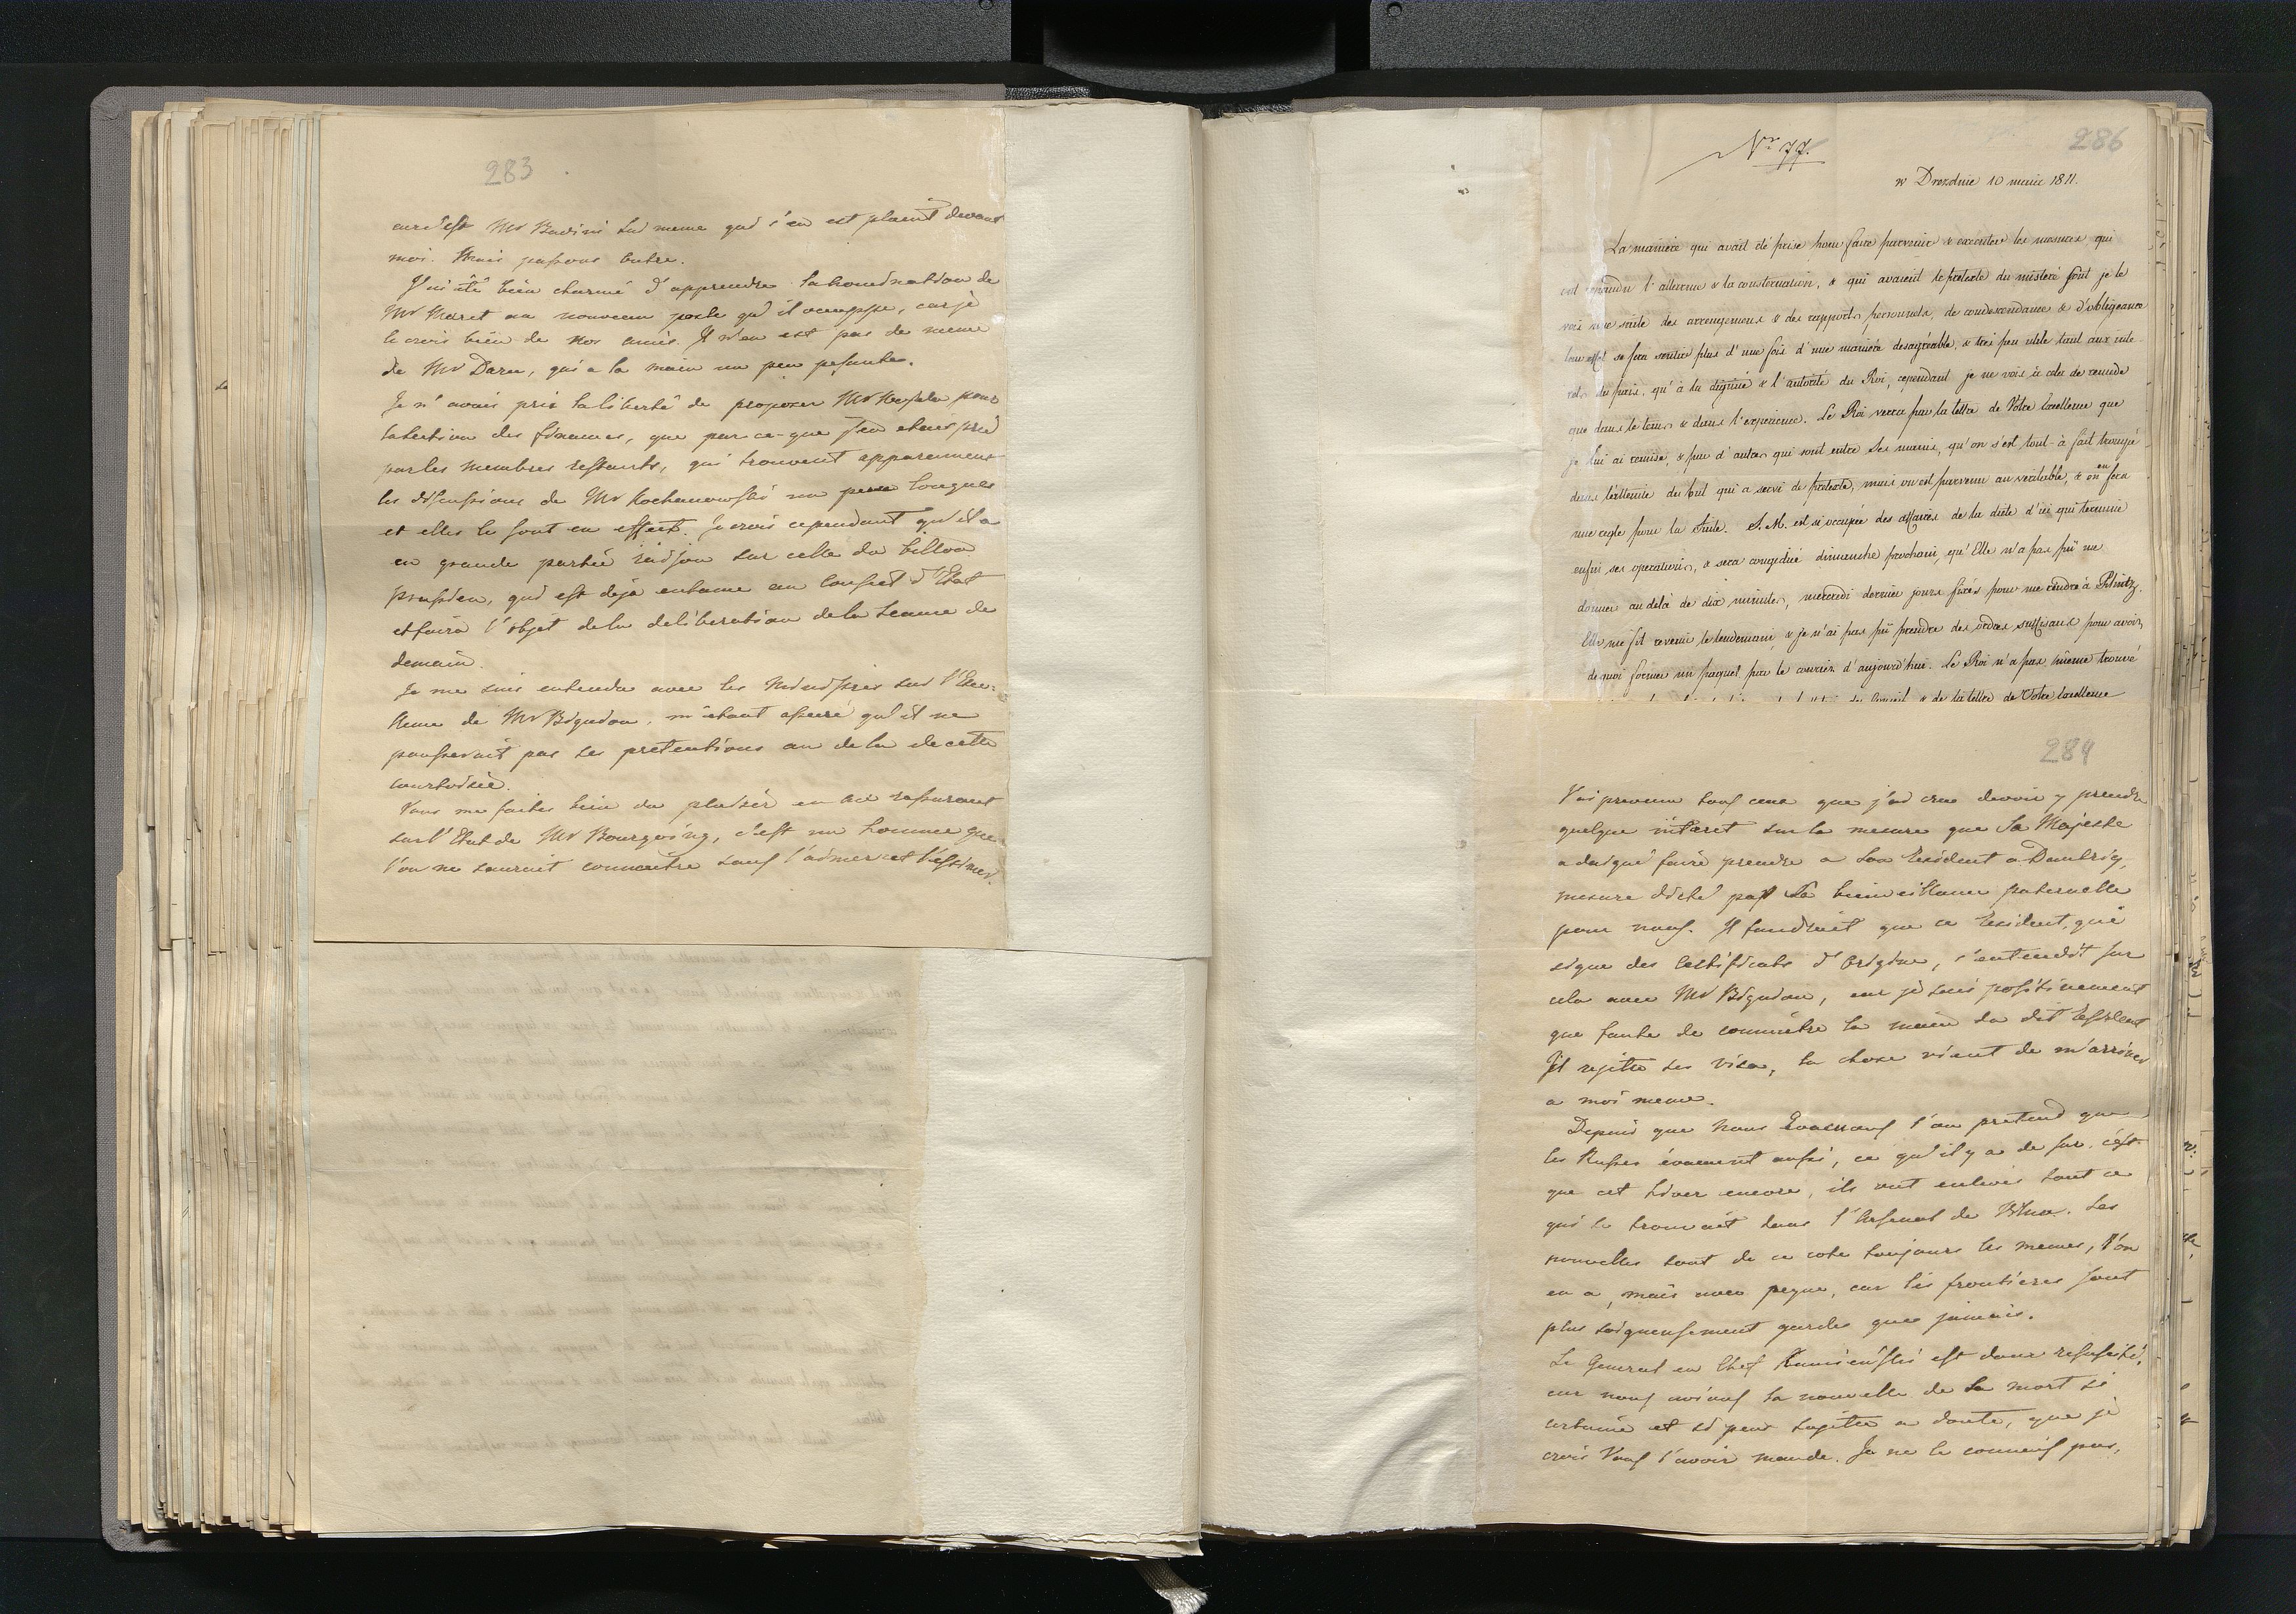 283
car c'est Mr Badini lui meme qui s'en est plaint devant
moi. Mais passons outre.
J'ai été bien charmé d'apprendre la nomination de
Mr Maret au nouveau poste qu'il occuppe, car je
le crois bien de nos amis. Il n'en est pas de meme
de Mr Daru, qui a la main un peu pesante.
Je n'avais pris la liberté de proposer Mr pour
la section des finances, que par-ce-que j'en etais prié
par les membres restants, qui trouvent apparemment
les discussions de Mr Kochanowski un peu longues
et elles le sont en effect. Je crois cependant qu'il a
en grande partie raison sur celle du billon
prussien, qui est déja entamé au Conseil d'Etat
et faira l'objet de la deliberation de la seance de
demain.
Je me suis entendu avec les Ministres sur l'Exce-
llence de Mr Bignion, m'étant assuré qu'il ne
pousserait pas ses pretentions au dela de cette
courtoisie.
Vous me faites bien du plaisir en me rassurant
sur l'Etat de Mr Bourgoing, c'est un homme que
l'on ne sauroit connaitre sans l'aimer et l'estimer.
Nr 77.
286
w Dreznie 10 maia 1811.
La maniere qui avait été prise pour faire parvenir & executer les mesures qui
ont repandu l'allarme & la consternation, & qui avaient le pretexte du mistere sont je le
vois une suite des arrengemens & des rapports personnels, de condescendance & d'obligeance
leur effet se fera sentir plus d'une fois d'une maniere desagréable, & tres peu utile tant aux inte-
rets du païs, qu'à la dignité & l'autorité du Roi, cependant je ne vois à cela de remede
que dans le tems & dans l'experience. Le Roi verra par la lettre de Votre Excellence que
je lui ai remise, & par d'autres qui sont entre Ses mains, qu'on s'est tout-à fait trompé
dans l'attente du but qui a servi de pretexte, mais on est parvenu au veritable, & on en fera
une regle pour la suite. S. M. est si occupée des affaires de la diete d'ici qui termine
enfin ses operations, & sera congediée dimanche prochain, qu'Elle n'a pas pû me
donner au delà de dix minutes, mercredi dernier jours fixés pour me rendre à Pilnitz.
Elle me fit revenir le lendemain, & je n'ai pas pû prendre des ordres suffisans pour avoir
de quoi former un paquet par le courrier d'aujourd'hui. Le Roi n'a pas même trouvé
Conseil & de la lettre de Votre Excellence
284
J'ai prevenu tous ceux que j'ai cru devoir y prendre
quelque intaret sur la mesure que Sa Majesté
a daigné faire prendre a Son Resident a Dantzig,
mesure dicté par Sa bienveillance paternelle
pour nous. Il faudroit que ce Resident, qui
signe des certificats d'Origine, s'entendit sur
cela avec Mr Bignion, car je sais positivement
que faute de connaitre la main du dit Resident
Il rejette ses visa, la chose vient de m'arriver
a moi meme.
Depuis que nous Evacuons l'on pretend que
les Russes évacuent aussi, ce qu'il y a de sur c'est
que cet hiver encore, ils ont enlevé tout ce
qui se trouvait dans l'Arsenal de Vilna. Les
nouvelles sont de ce coté toujours les memes, l'on
en a, mais avec peyne, car les frontieres sont
plus soigneusement gardés que jamais.
Le General en Chef Kamienski est donc resuscité,
car nous avions la nouvelle de sa mort si
certaine et si peu sujette a doute, que je
crois Vous l'avoir mandé. Je ne le connois pas,